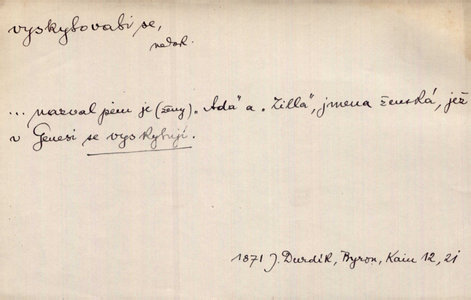 vyskytovati se,
nedok.
... nazval pém je (ženy) „Ada“ a „Zilla“, jmena ženská, jež
v Genesi se vyskytují.
1871 J. Durdík, Byron, Kain 12, 21